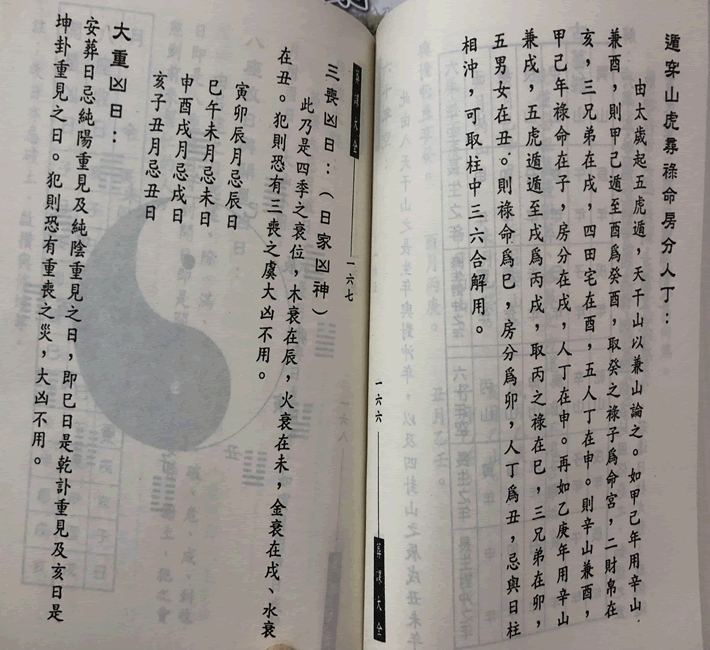 遁穿山虎尋祿命房分人丁：
由太歲起五虎遁，天干山以兼山論之。如甲己年用辛山
兼酉，則甲己遁至酉爲癸酉，取癸之祿子爲命宮，二財帛在
亥，三兄弟在戌，四田宅在酉，五人丁在申。則辛山兼酉，
甲己年祿命在子，房分在戌，人丁在申。再如乙庚年用辛山
兼戌，五虎遁遁至戌爲丙戌，取丙之祿在巳，三兄弟在卯，
五男女在丑。則祿命爲巳，房分爲卯，人丁爲丑，忌與日柱
相沖，可取柱中三六合解用。
一六六
葬課大全
葬課大全
一六七
三喪凶日：（日家凶神）
此乃是四季之衰位，木衰在辰，火衰在未，金衰在戌、水衰
在丑。犯則恐有三喪之虞大凶不用。
寅卯辰月忌辰日
巳午未月忌未日
申酉戌月忌戌日
亥子丑月忌丑日
大重凶日：
安葬日忌純陽重見及純陰重見之日，即巳日是乾卦重見及亥日是
坤卦重見之日。犯則恐有重喪之災，大凶不用。